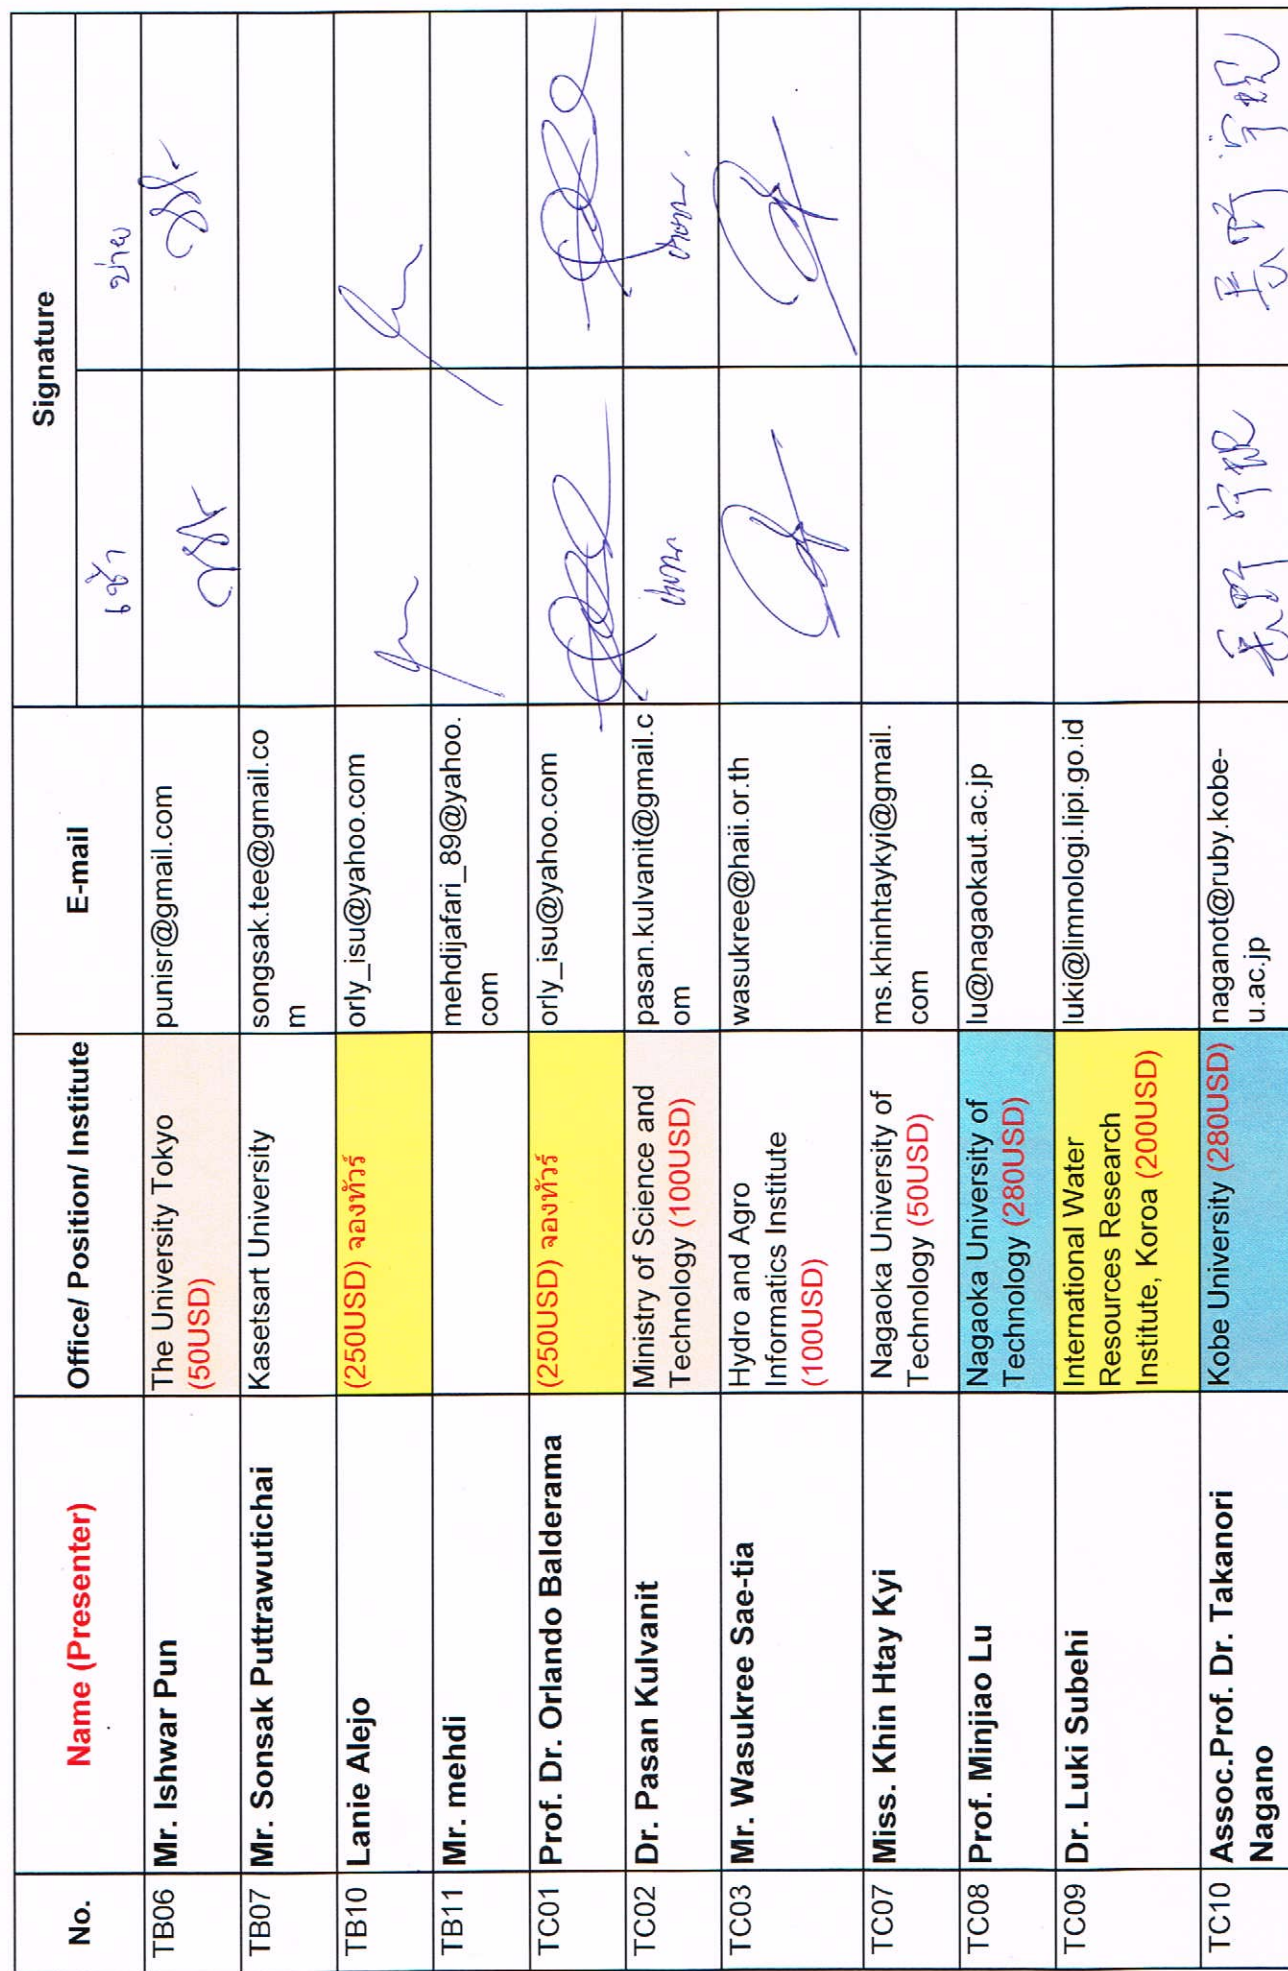 No.
Name (Presenter)
Office/ Position/ Institute
E-mail
Signature
เช้า
บ่าย
TB06
Mr. Ishwar Pun
The University Tokyo
(50USD)
punisr@gmail.com
TB07
Mr. Sonsak Puttrawutichai
Kasetsart University
songsak.tee@gmail.co
m
TB10
Lanie Alejo
(250USD) จองทัวร์
orly_isu@yahoo.com
TB11
Mr. mehdi
mehdijafari_89@yahoo.
com
TC01
Prof. Dr. Orlando Balderama
(250USD) จองทัวร์
orly_isu@yahoo.com
TC02
Dr. Pasan Kulvanit
Ministry of Science and
Technology (100USD)
pasan.kulvanit@gmail.c
om
TC03
Mr. Wasukree Sae-tia
Hydro and Agro
Informatics Institute
(100USD)
wasukree@haii.or.th
TC07
Miss. Khin Htay Kyi
Nagaoka University of
Technology (50USD)
ms.khinhtaykyi@gmail.
com
TC08
Prof. Minjiao Lu
Nagaoka University of
Technology (280USD)
lu@nagaokaut.ac.jp
TC09
Dr. Luki Subehi
International Water
Resources Research
Institute, Koroa (200USD)
luki@limnologi.lipi.go.id
TC10
Assoc.Prof. Dr. Takanori
Nagano
Kobe University (280USD)
naganot@ruby.kobe-
u.ac.jp
長野
長野